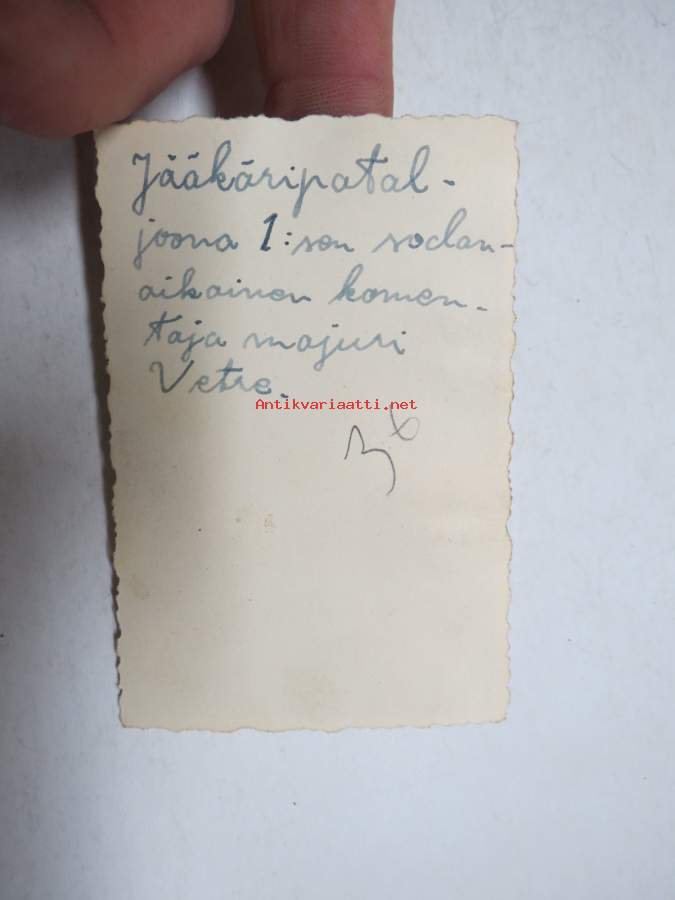 Jääkäripatal-
joona 1:sen sodan-
aikainen komen-
taja majuri
Vetre.
Antikvariaatti.net
36